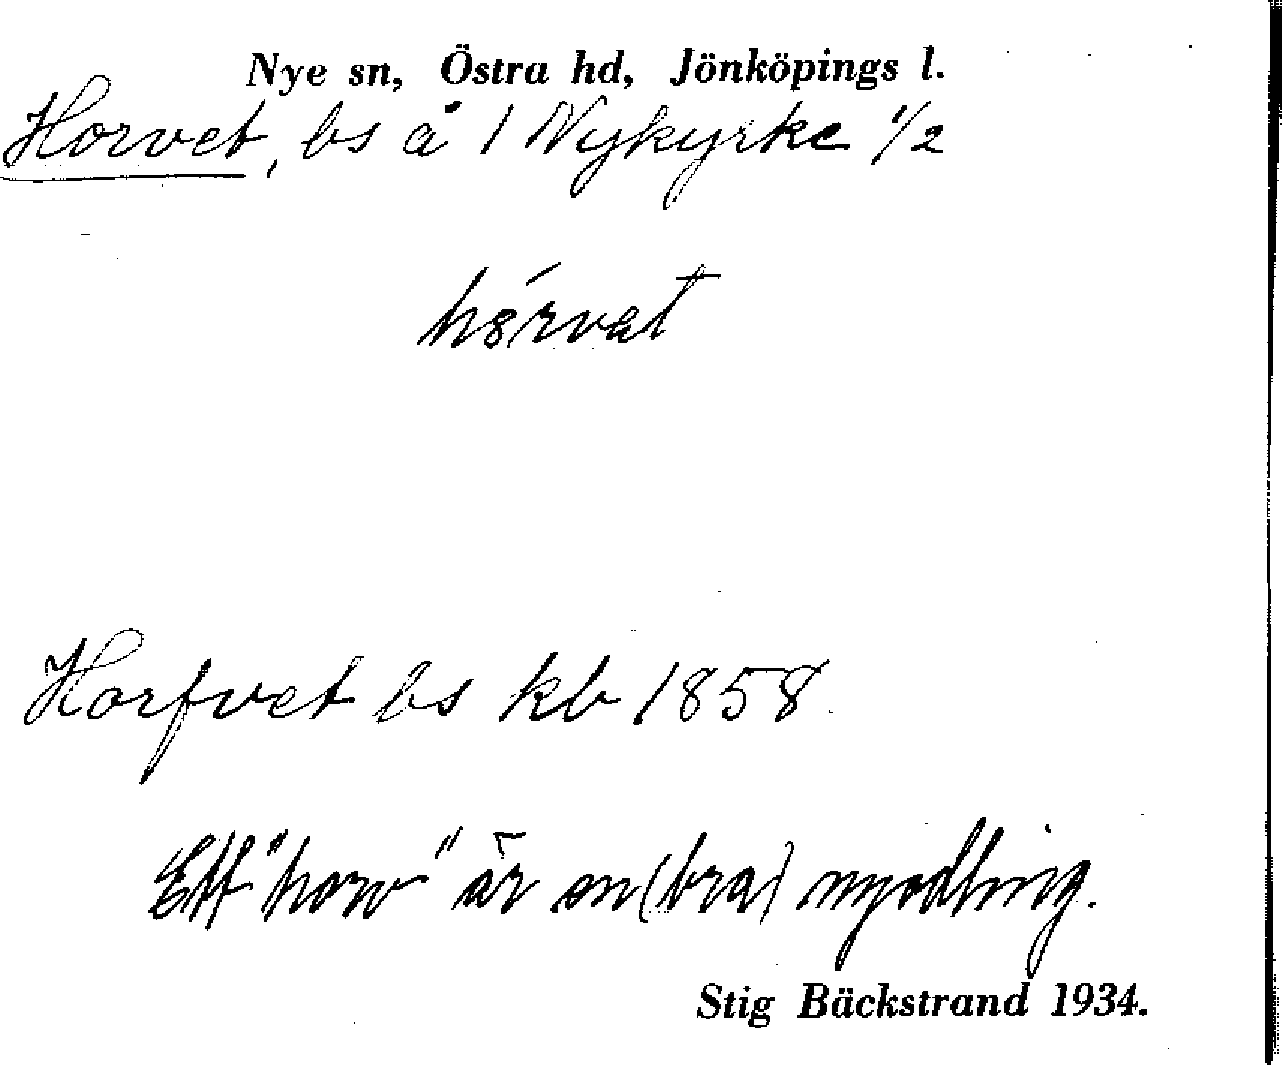 Nye sn, Östra hd, Jönköpings l.
Horvet, bs å 1 Nykyrke 1/2
hørvet
Horfvet bs kb 1858
Ett "horv" är en (bra) nyodling.
Stig Bäckstrand 1934.